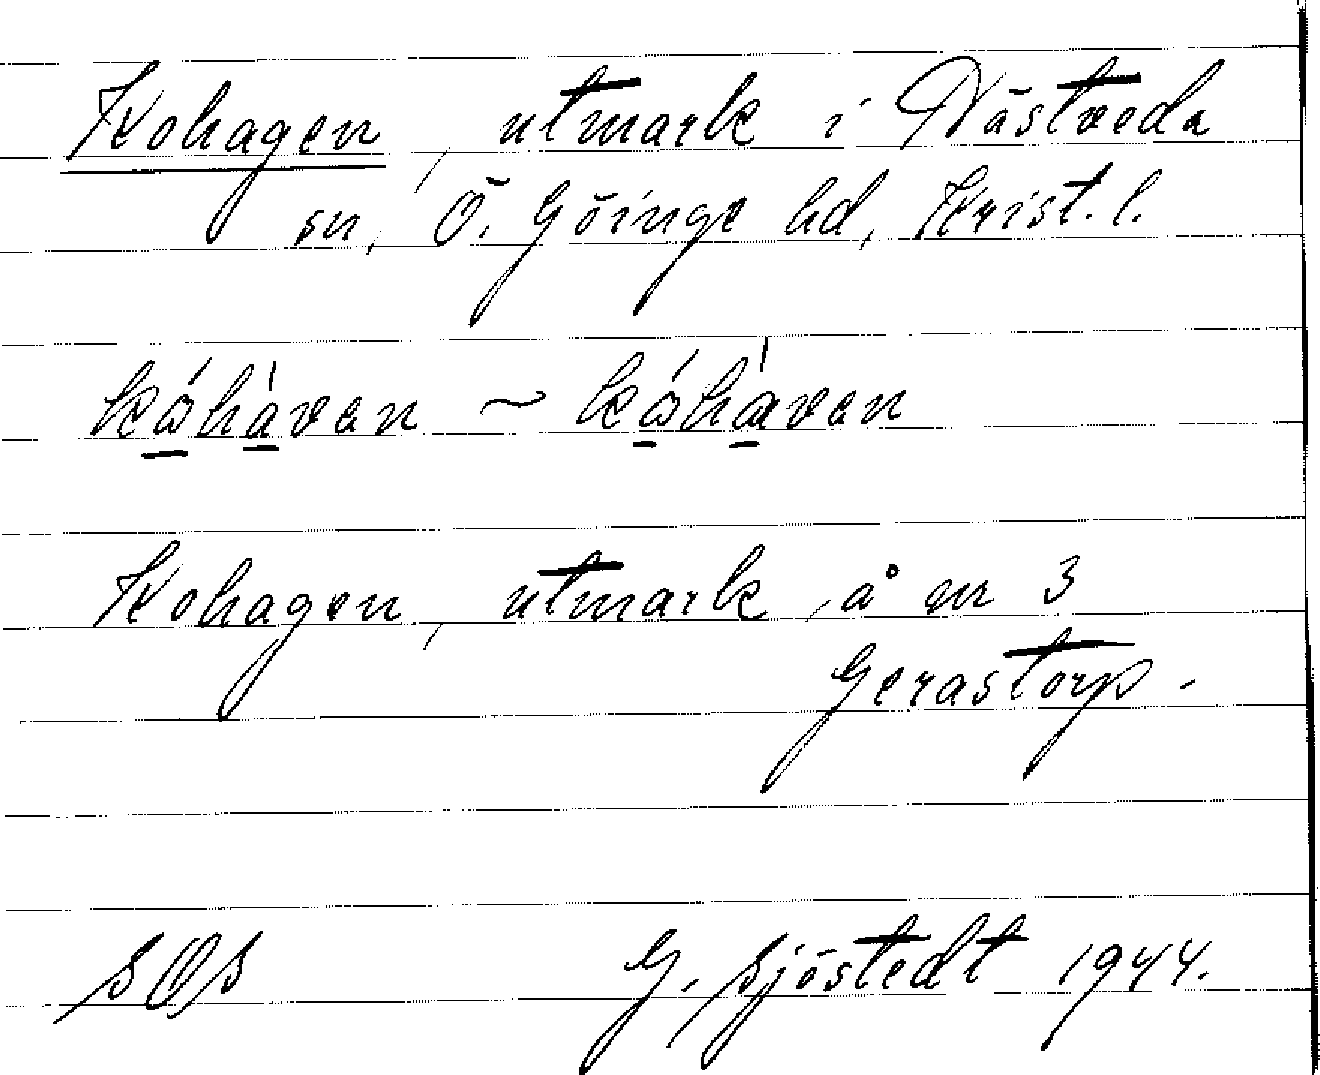 Kohagen, utmark i Nästveda
sn, Ö. Göinge hd, Krist. l.
kóhàven ~ kóhàven
Kohagen, utmark, å nr 3
Gerastorp.
SOS G. Sjöstedt 1944.